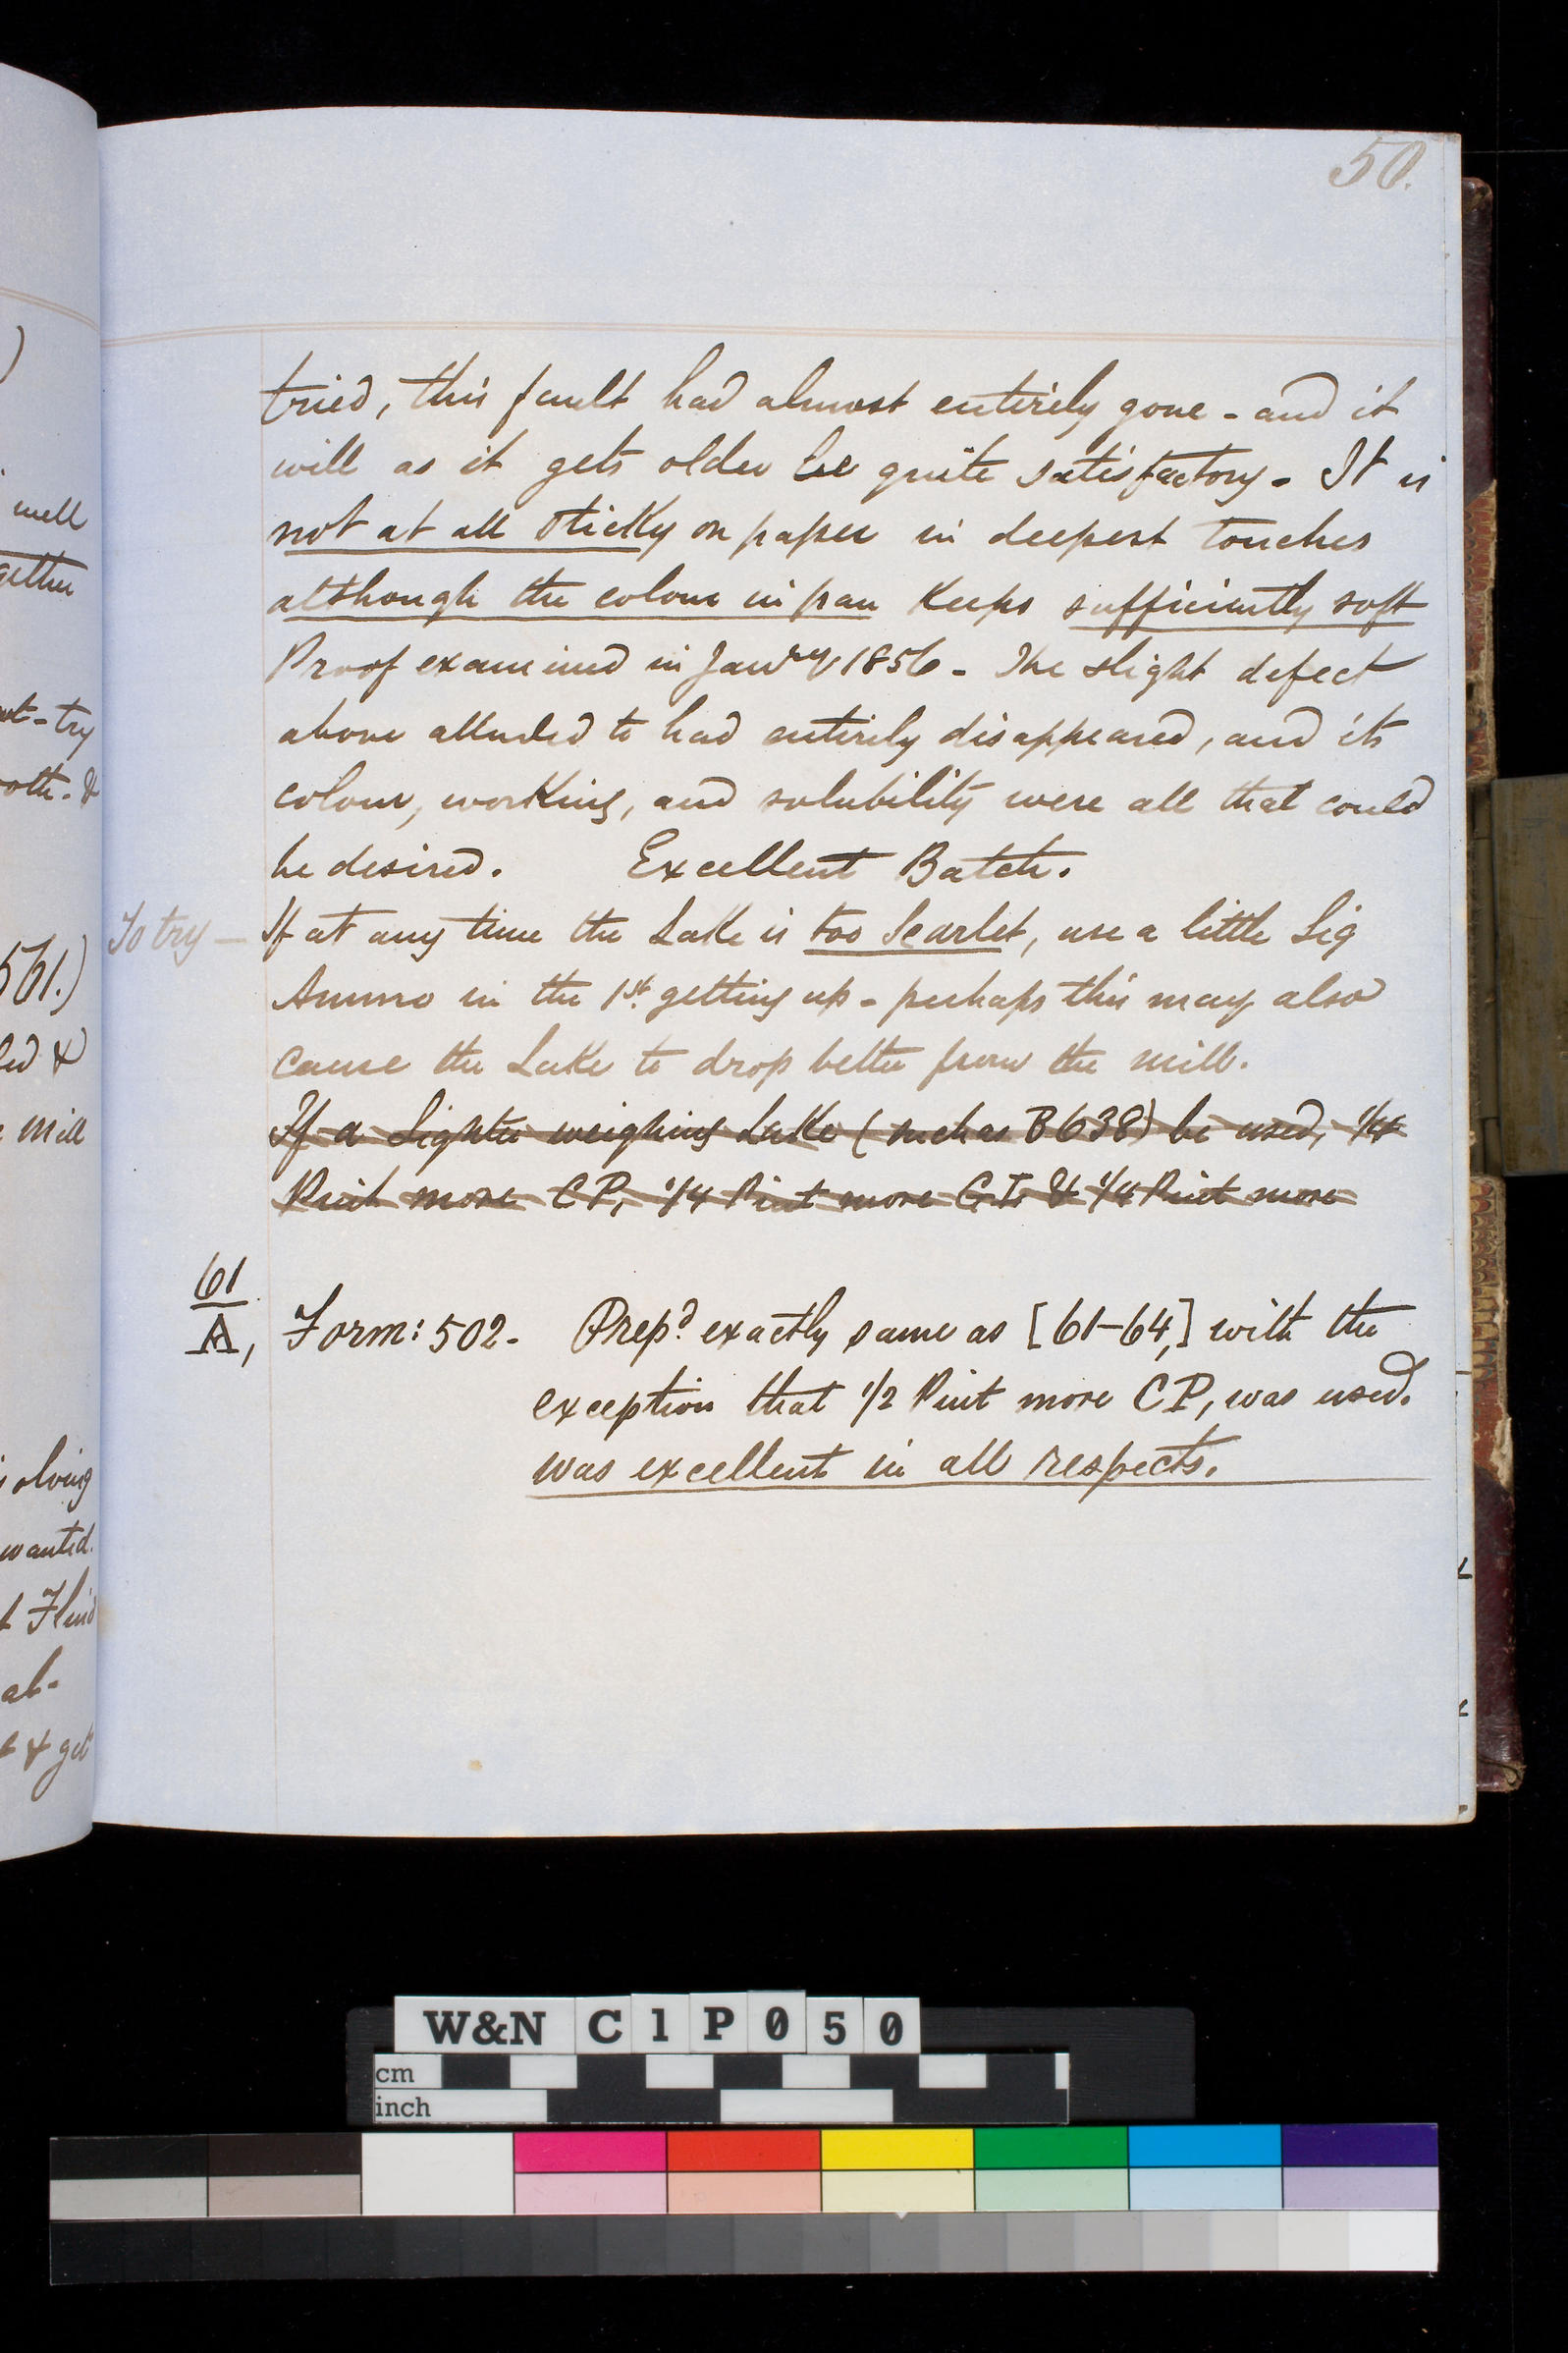 50.
tried, this fault had almost entirely gone - and it
will as it gets older be quite satisfactory - It is
not at all sticky on paper in deepest touches
although the colour in pan keeps sufficiently soft
Proof examined in Jany 1856 - The slight defect
above alluded to had entirely disappeared, and its
colour, working, and solubility were all that could
be desired. Excellent Batch.
To try - If at any time the Lake is too Scarlet, use a little Liq
Ammo in the 1st getting up - perhaps this may also
cause the Lake to drop better from the mill.
If a Lighter weighing Lake (such as B638) be used, 1/4
Pint more CP, 1/4 Pint more GI & 1/4 Pint more
61
A, Form: 502 - Prepd exactly same as [61-64,] with the
exception that 1/2 Pint more CP, was used.
was excellent in all respects.
well
gether
try
561.)
mill
olving
wanted.
& get
W&N C1P050
cm
inch